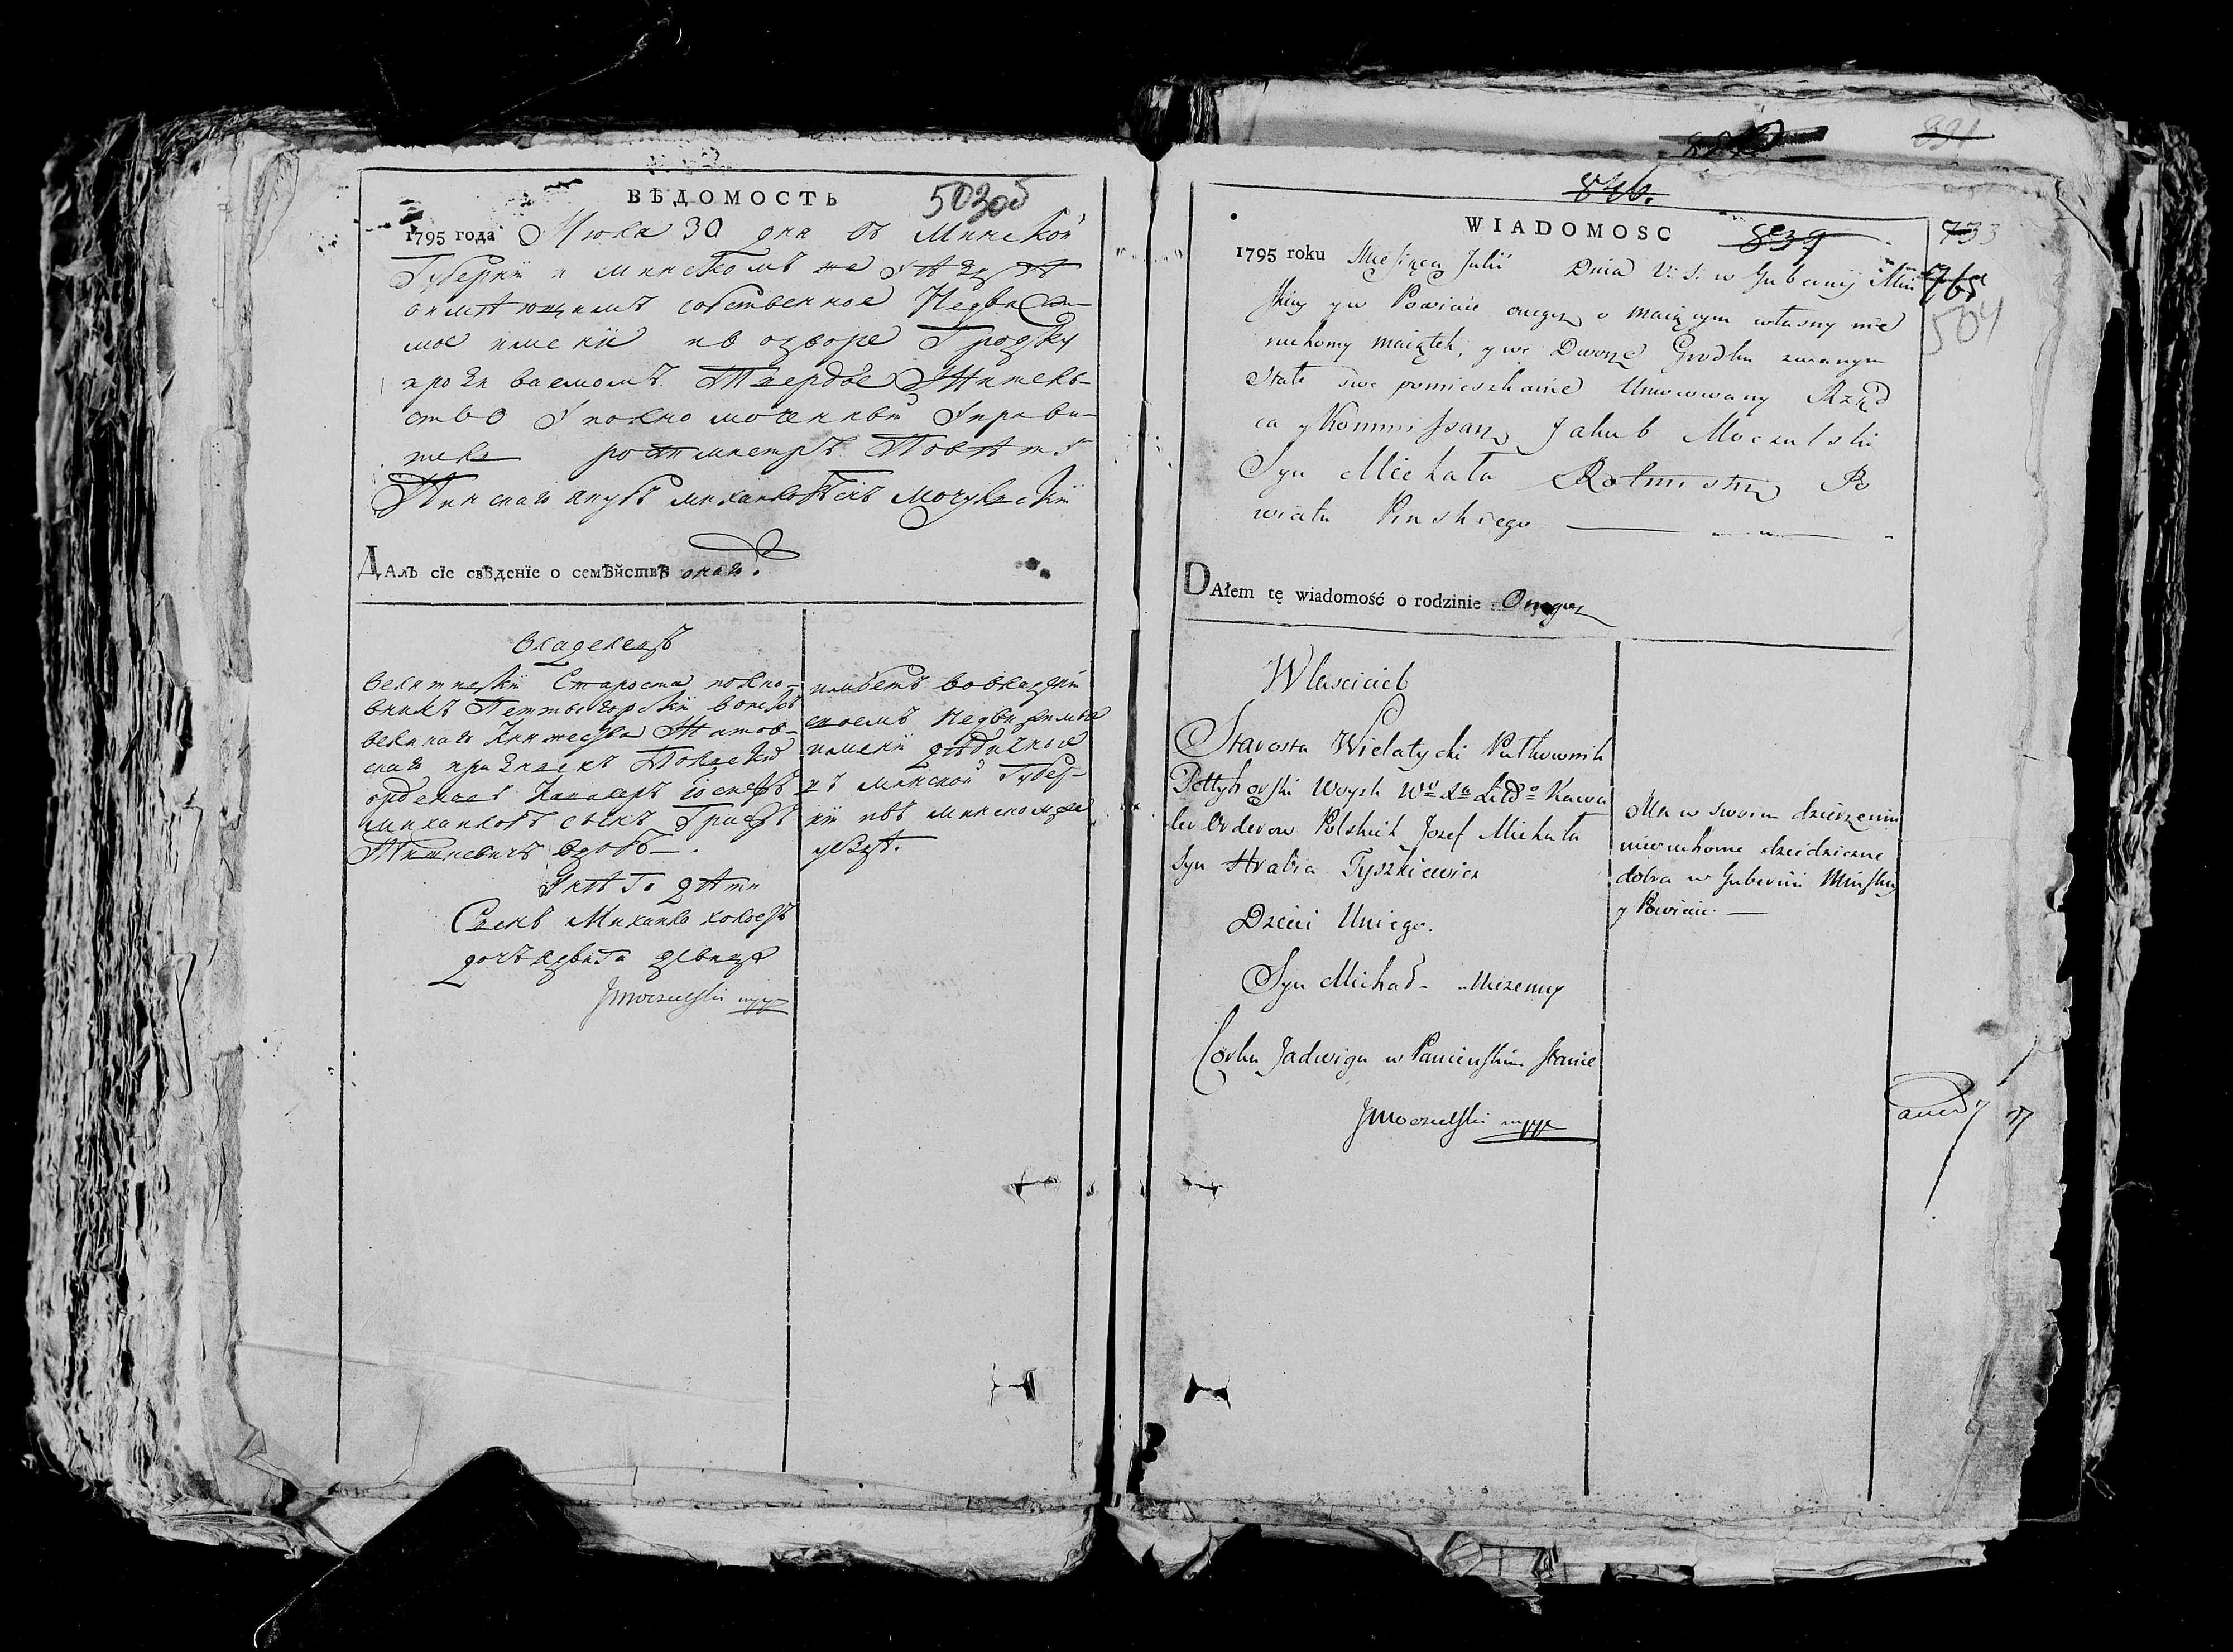 ВѢДОМОСТЬ
1795 года Июля 30 дня въ Минской
Губернїи и Минскомъ же уѣздѣ
о имѣющимъ собственное Недвижи-
мое имени въ дворе Гродку
прозываемомъ Твердое Житель-
ство Уполномоченный Управи-
тель ротмистръ Повѣту
Пинскаго Якубъ Михайловъ Сынъ Мочульскїй
ДАлъ сїе свѣденїе о семѣйствѣ онаго.
Владелецъ
Велитицкїй Староста полко-
вникъ Петтыгорскїй Войскъ
великаго Княжества Литов-
скаго
орденовъ Кавалеръ Іосифъ
Михайловъ сынъ Графъ
Тишкевичъ
У него дѣти
Сынъ Михайло холостъ
дочь Ядвига девица
JMoczulski mpp
имѣетъ во владенїи
своемъ недвижимые
имени дѣдичные
въ Минской Губер-
нїи и въ Минскомъ же
уездѣ.
846.
WIADOMOSC 839
733
1795 roku Miesiąca Julii Dnia V. S. w Gubernij Miń
765
skiey y w Powiecie onegoż o maiącym własny nie
504
ruchomy maiątek, y we Dworze Grodku zwanym
Stałe swe pomieszkanie Umocowany Rząd
ca y Kommissarz Jakub Moczulski
Syn Michała Rotmistrz Po
wiatu Pinskiego
DAłem tę wiadomość o rodzinie Onegoż
Własciciel
Starosta Wielatycki Pułkownik
Pettyhorski Woysk Wo Xa Litto Kawa
ler Orderow Polskich Jozef Michała
Syn Hrabia Tyszkiewicz
Dzieci Uniego.
Syn Michał - niezenny
Corka Jadwiga w Panienskim stanie
JMoczulski mpp
Ma w swoim dzierżeniu
nieruchome dziedziczne
dobra w Gubernii Minskiey
y Powiecie. —